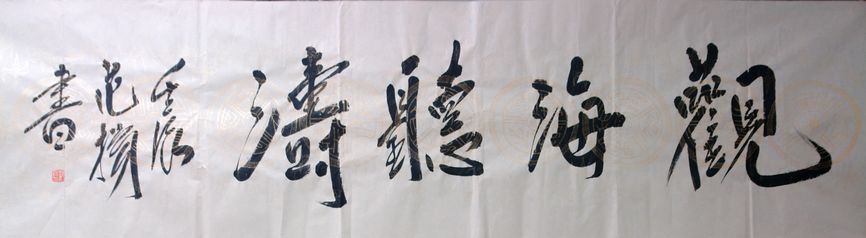 觀海聽濤
書